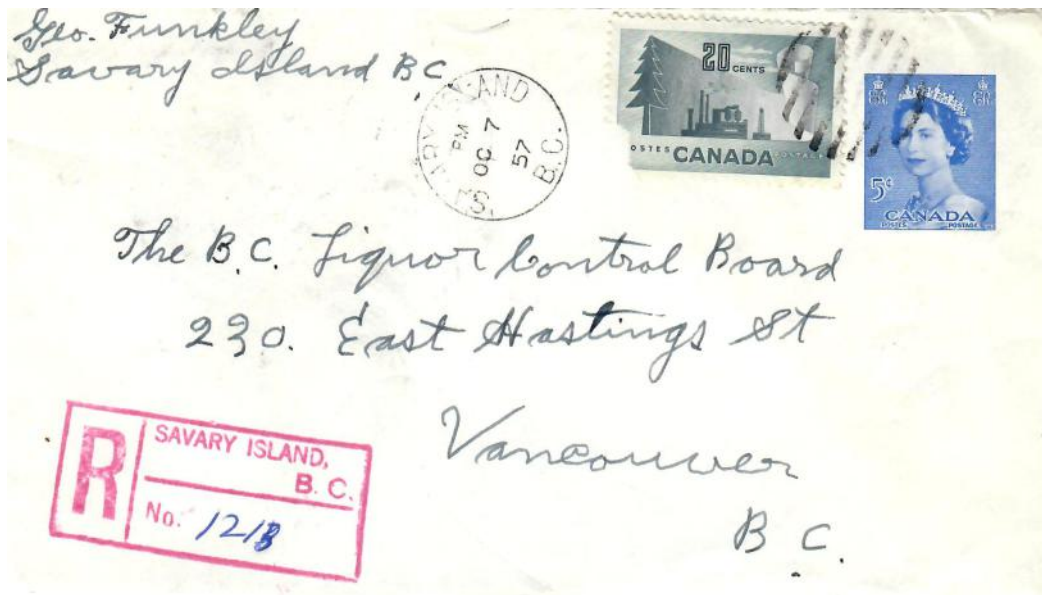 Geo. Funkley
Savary Island BC
SAVARY ISLAND
PM
OC 7
57
B.C.
20 CENTS
POSTES CANADA POSTAGE
5¢
CANADA
POSTES POSTAGE
The B.C. Liquor Control Board
230. East Hastings St
Vancouver
B C.
R
SAVARY ISLAND,
B. C.
No. 1213